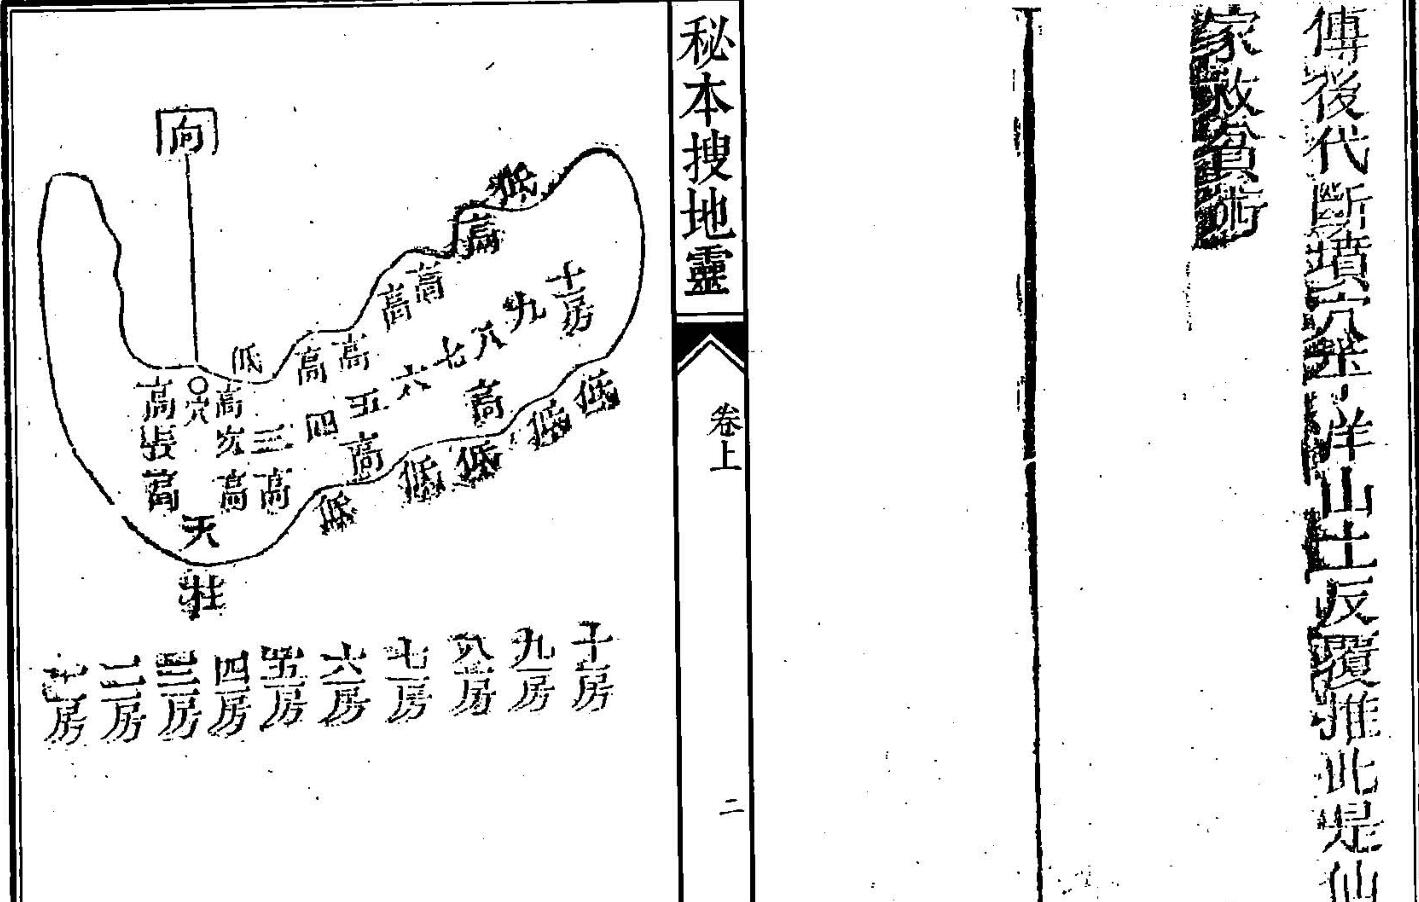 傳後代斷墳穴坐下洋山土反覆推此是仙
家救貧術
秘本搜地靈
卷上
二
向
低
高
高
高
高
高
低
十房
九
八
七
六
五
四
三
高
高
高
高
穴
高
張
高
高
高
天
柱
低
低
低
低
低
十房
九房
八房
七房
六房
五房
四房
三房
二房
一房